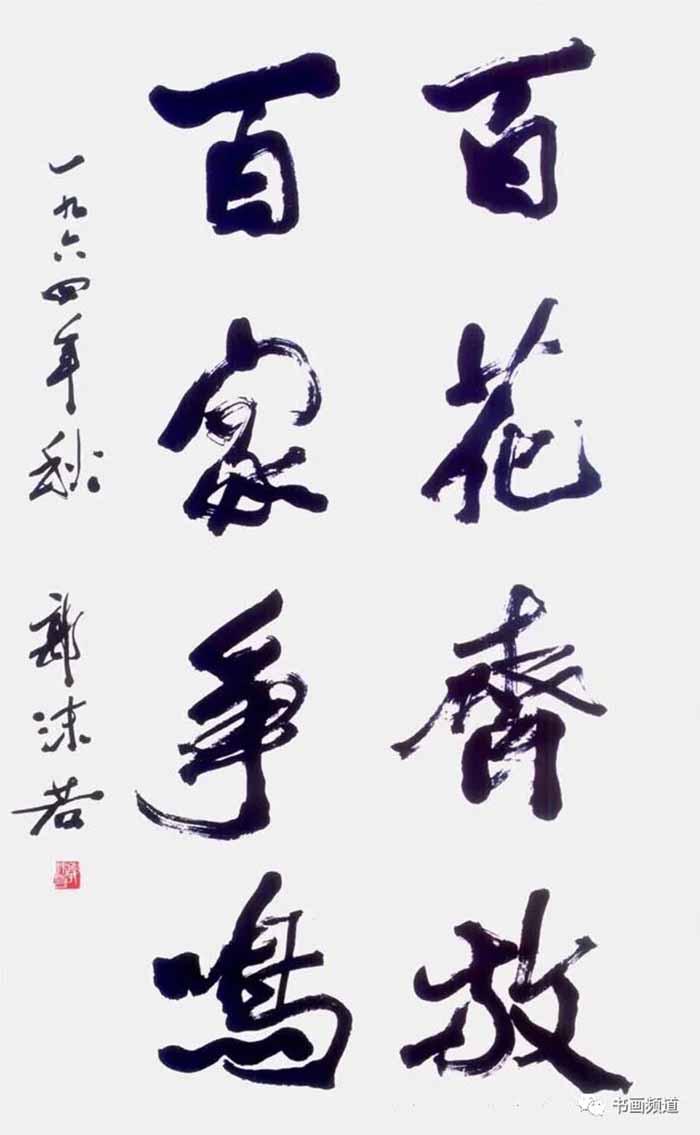 百花齊放
百家爭鳴
一九六四年秋
郭沫若
书画频道